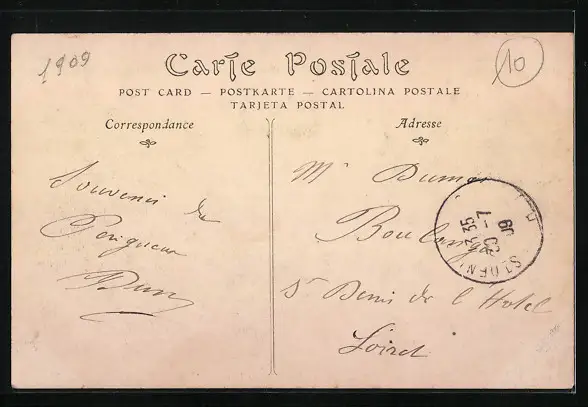 1909
10
Carte Postale
POST CARD — POSTKARTE — CARTOLINA POSTALE
TARJETA POSTAL
Correspondance
Adresse
Souvenir de
Perigueux
Mr Dumas
Boulanger
St Denis de l'Hotel
Loiret
ST DENI
3 35
20 - 7
09